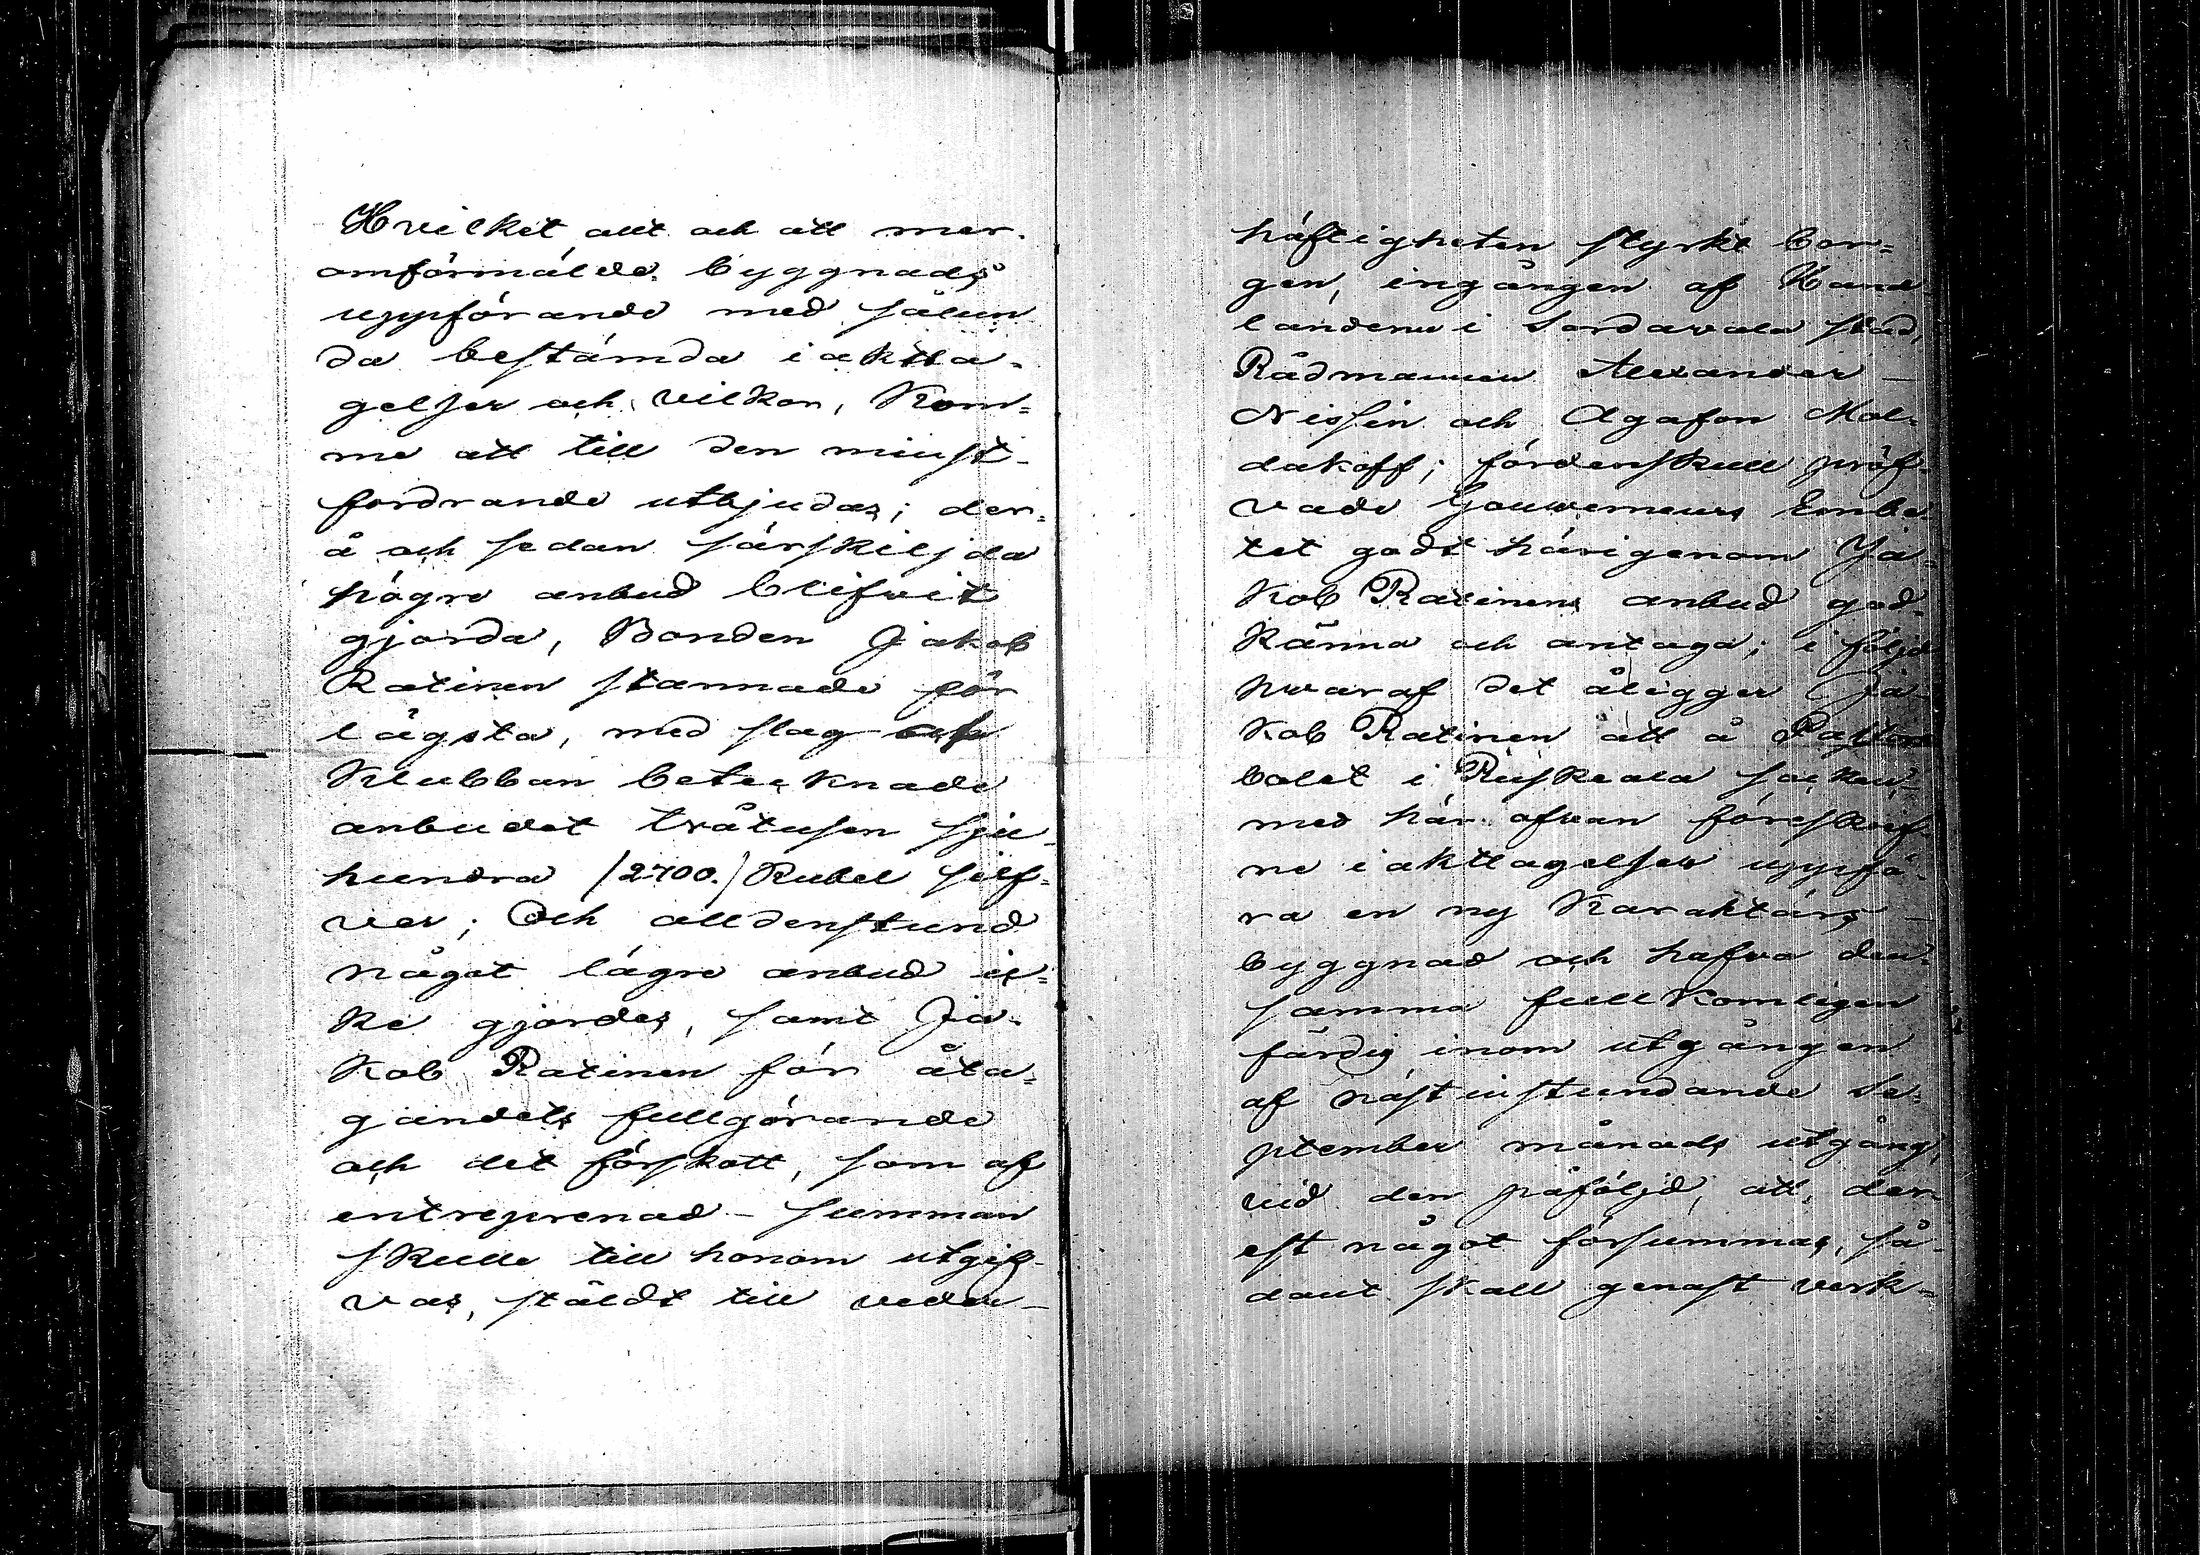 Hvilket allt och att mer-
omförmälde byggnads
uppförande med sålun
da bestämda iaktta-
gelser och vilkor, kom-
me att till den minst-
fordrande utbjudas; der-
å och sedan särskiljda
högre anbud blifvit
gjorda, Bonden Jakob
Ratinen stannade för
lägsta, med slag af
Klubban betecknade
anbudet tvåtusen sju-
hundra /2700./ Rubel silf-
ver; Och alldenstund
något lägre anbud ic-
ke gjordes, samt Ja-
kob Ratinen för åta-
gandets fullgörande
och det förskott, som af
entreprenad-summan
skulle till honom utgif-
vas, stäldt till veder-
häftigheten styrkt bor-
gen, ingången af Hand
landene i Sordavala stad,
Rådmannen Alexander
Nissin och Agafon Mol-
dakoff; fördenskull pröf-
vade Gouverneurs Embe
tet godt härigenom Ja-
kob Ratinens anbud god-
känna och antaga; i följd
hvaraf det åligger Ja-
kob Ratinen att å Pastors
bolet i Ruskeala socken,
med här ofvan föreskrif-
ne iakttagelser uppfö-
ra en ny Karaktärs-
byggnad och hafva den-
samma fullkomligen
färdig inom utgången
af nästinstundande Se-
ptember månads utgång,
vid den påföljd, att, der-
est något försummas, så-
dant skall genast verk-